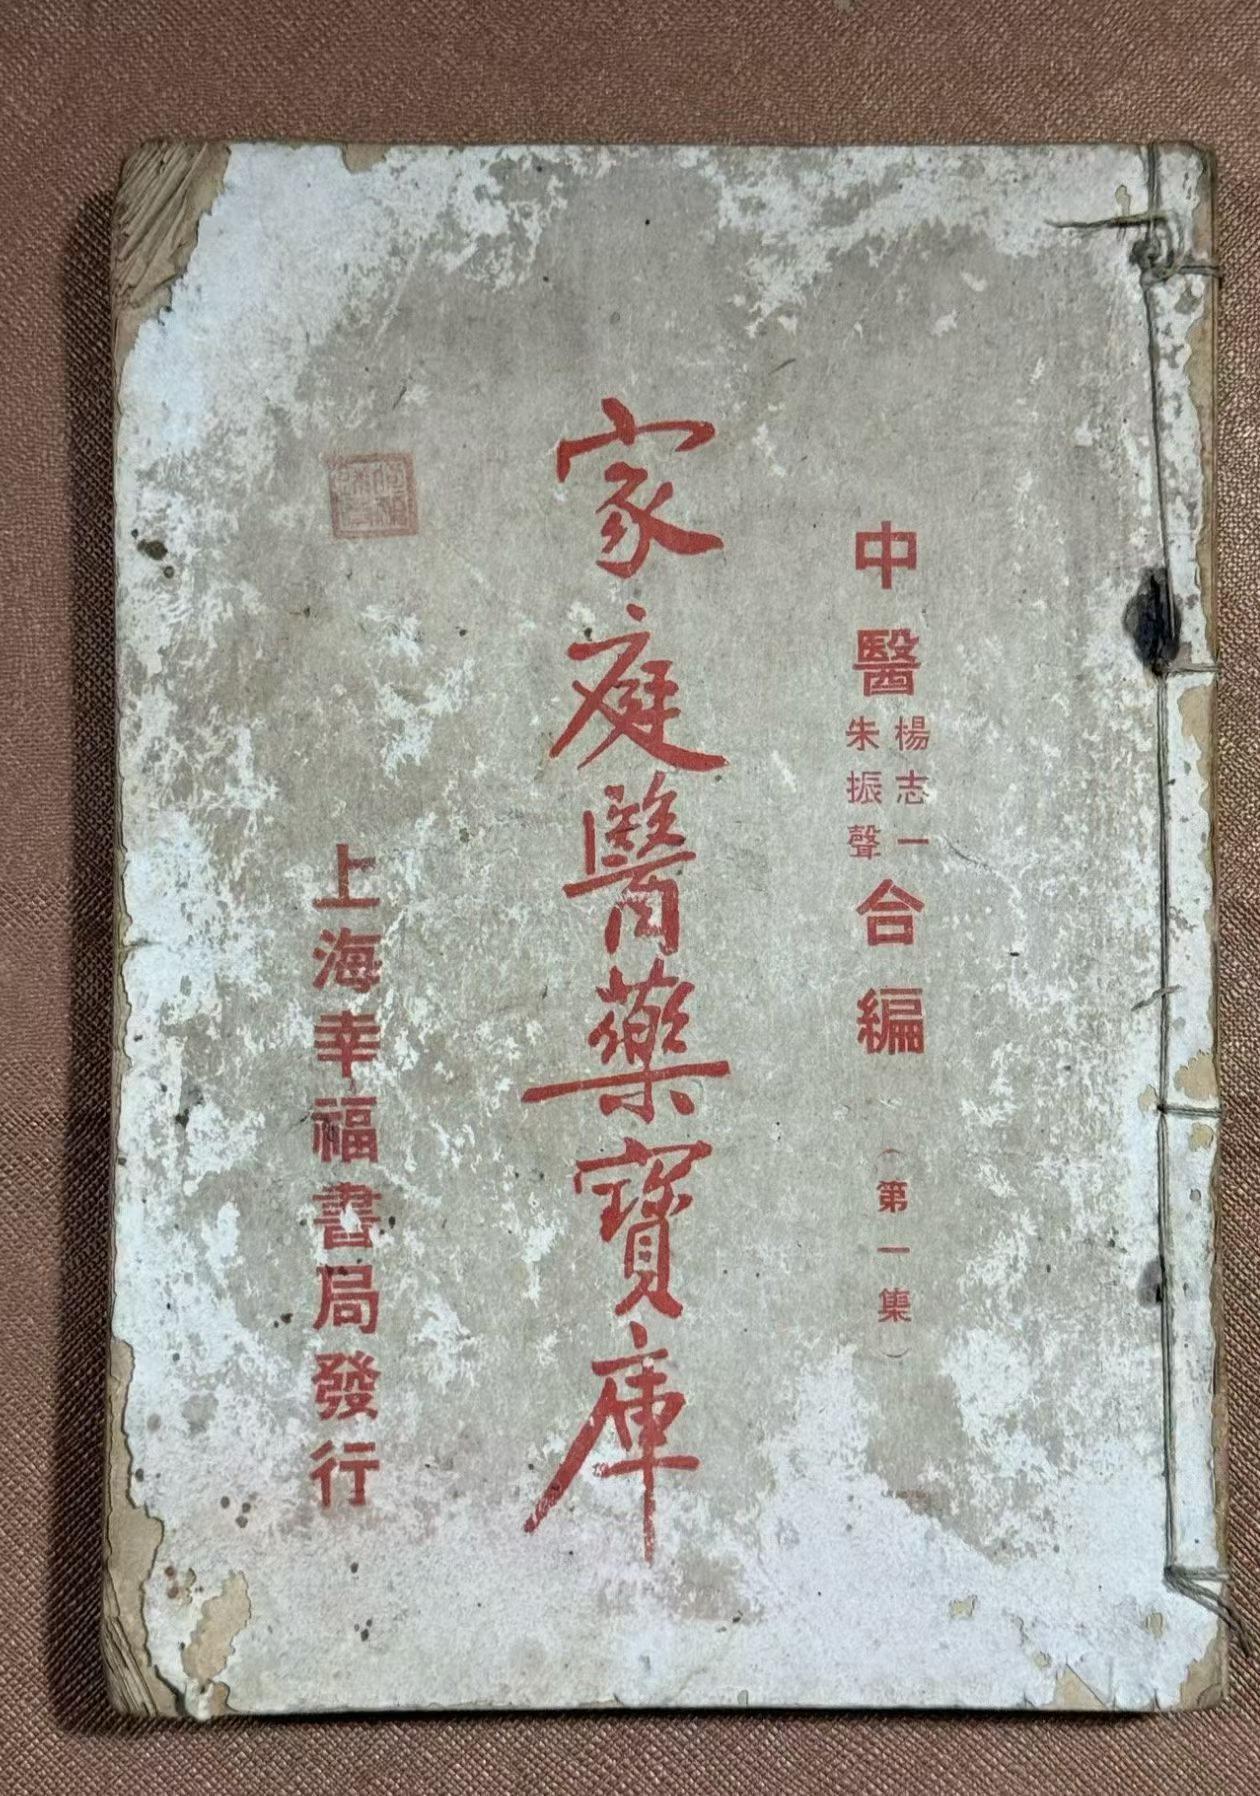 中醫楊志一朱振聲合編(第一集)
家庭醫藥寶庫
上海幸福書局發行